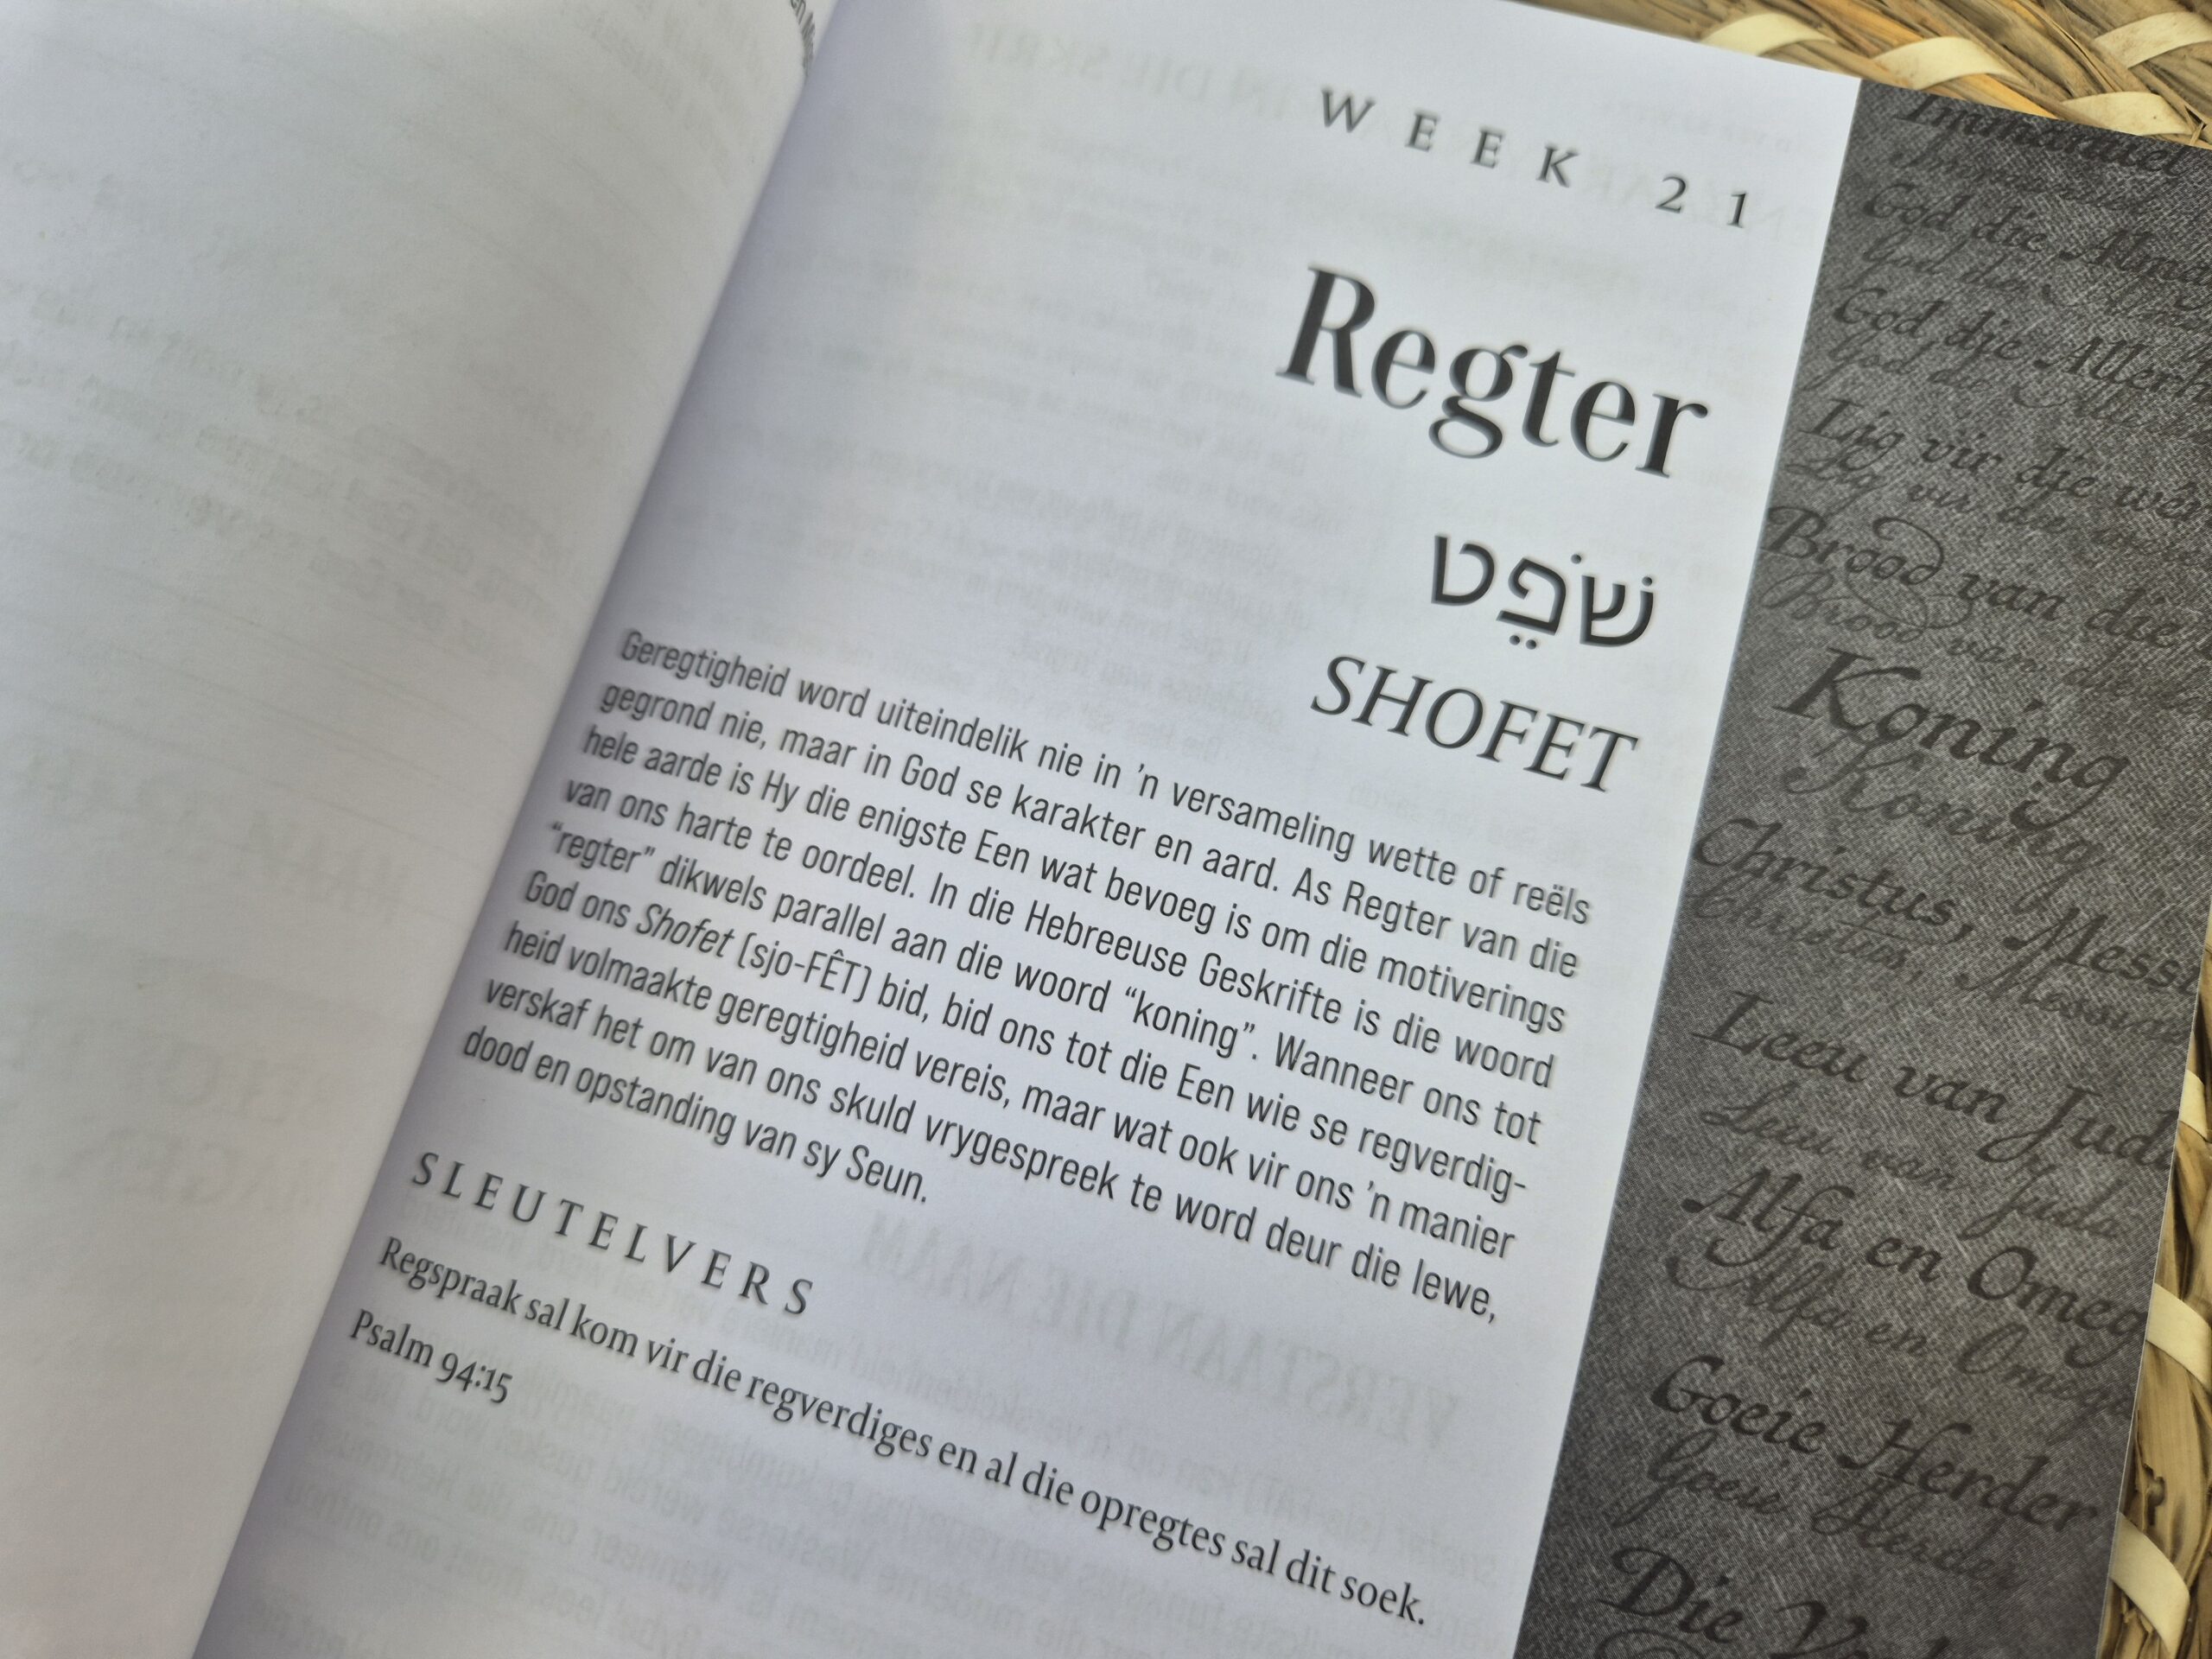 WEEK 21
Regter
שֹׁפֵט
SHOFET
Geregtigheid word uiteindelik nie in ’n versameling wette of reëls
gegrond nie, maar in God se karakter en aard. As Regter van die
hele aarde is Hy die enigste Een wat bevoeg is om die motiverings
van ons harte te oordeel. In die Hebreeuse Geskrifte is die woord
“regter” dikwels parallel aan die woord “koning”. Wanneer ons tot
God ons Shofet (sjo-FÊT) bid, bid ons tot die Een wie se regverdig-
heid volmaakte geregtigheid vereis, maar wat ook vir ons ’n manier
verskaf het om van ons skuld vrygespreek te word deur die lewe,
dood en opstanding van sy Seun.
SLEUTELVERS
Regspraak sal kom vir die regverdiges en al die opregtes sal dit soek.
Psalm 94:15
Immanuel
God die
God die
God die
God die
Lig vir die
Lig vir die
Brood van die
Brood van die
Koning
Koning
Christus,
Christus
Leeu van
Leeu van Juda
Alfa en
Alfa en
Goeie Herder
Goeie Herder
Die